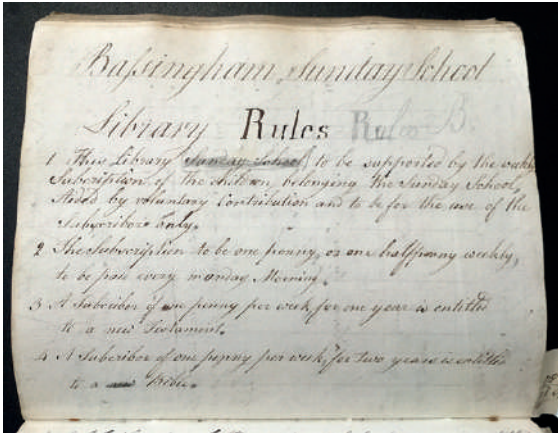 Baſsingham Sunday School
Library Rules Rules B.
1 This Library Sunday School, to be supported by the weekly
Subcription, of the children, belonging the Sunday School,
Aided by voluntary Contribution and to be for the use of the
Subscribers only.
2 The Subscription to be one penny, or one halfpenny weekly,
to be paid every monday Morning.
3 A Subcriber of one penny per week, for one year is entitled
to a new Testament.
4 A Subcriber of one penny per week, for two years is entitled
to a new Bible.